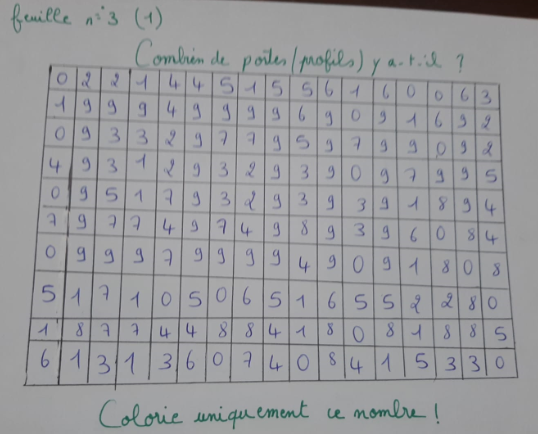 feuille n°3 (1)
Combien de portes/profils) y a-t-il ?
0 2 2 1 4 4 5 1 5 5 6 1 6 0 0 6 3
1 9 9 9 4 9 9 9 9 6 9 0 9 1 6 9 2
0 9 3 3 2 9 7 7 9 5 9 7 9 9 0 9 2
4 9 3 1 2 9 3 2 9 3 9 0 9 7 9 9 5
0 9 5 1 7 9 3 2 9 3 9 3 9 1 8 9 4
7 9 7 7 4 9 7 4 9 8 9 3 9 6 0 8 4
0 9 9 9 7 9 9 9 9 4 9 0 9 1 8 0 8
5 1 7 1 0 5 0 6 5 1 6 5 5 2 2 8 0
1 8 7 7 4 4 8 8 4 1 8 0 8 1 8 8 5
6 1 3 1 3 6 0 7 4 0 8 4 1 5 3 3 0
Colorie uniquement ce nombre !